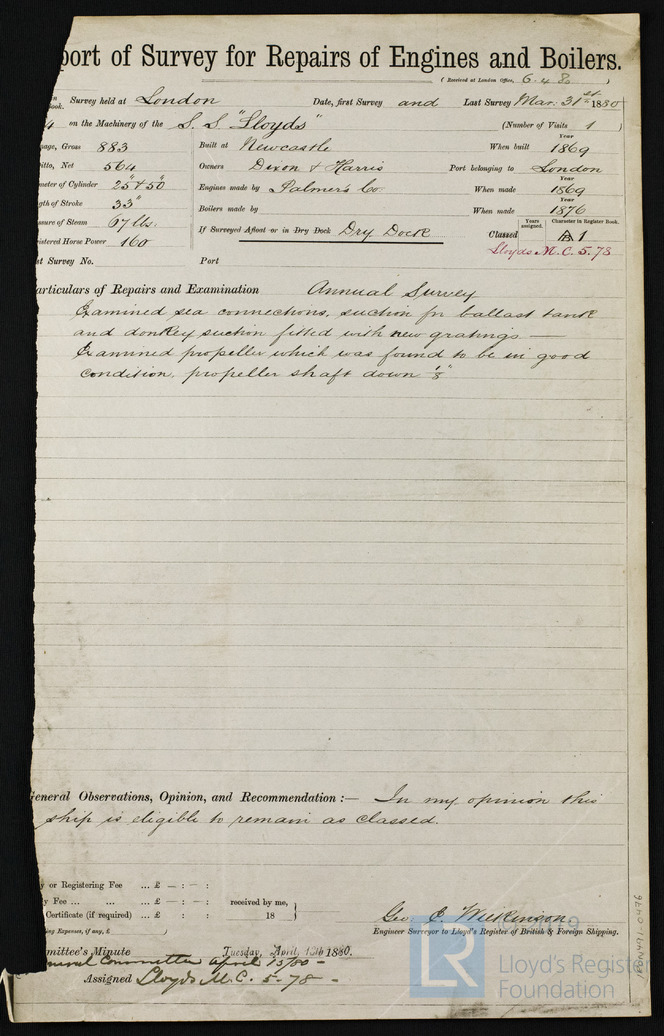 port of Survey for Repairs of Engines and Boilers.
(Received at London Office, 6.4.80 )
Book. Survey held at London Date, first Survey and Last Survey Mar. 31st 1880
on the Machinery of the S.S. "Lloyds" (Number of Visits 1 )
nage, Gross 883 Built at Newcastle When built Year 1869
itto, Net 564 Owners Dixon & Harris Port belonging to London
meter of Cylinder 25" & 50" Engines made by Palmer's Co. When made Year 1869
gth of Stroke 33" Boilers made by When made Year 1876
ssure of Steam 67 lbs. If Surveyed Afloat or in Dry Dock Dry Dock Classed Years assigned. Character in Register Book. A 1
istered Horse Power 160 Lloyds M.C. 5.78
st Survey No. Port
articulars of Repairs and Examination Annual Survey
Examined sea connections, suction for ballast tank
and donkey suction fitted with new gratings —
Examined propeller which was found to be in good
condition, propeller shaft down 1/8"
General Observations, Opinion, and Recommendation :— In my opinion this
ship is eligible to remain as classed.
y or Registering Fee ... £ — : — :
y Fee ... ... ... £ — : — : received by me,
Certificate (if required) ... £ : : 18
ling Expenses, if any, £ )
Geo. E. Wilkinson
Engineer Surveyor to Lloyd's Register of British & Foreign Shipping.
mmittee's Minute Tuesday, April, 13th 1880.
Committee April 13/80 —
Assigned Lloyds M.C. 5-78 —
LR
Lloyd's Register
Foundation